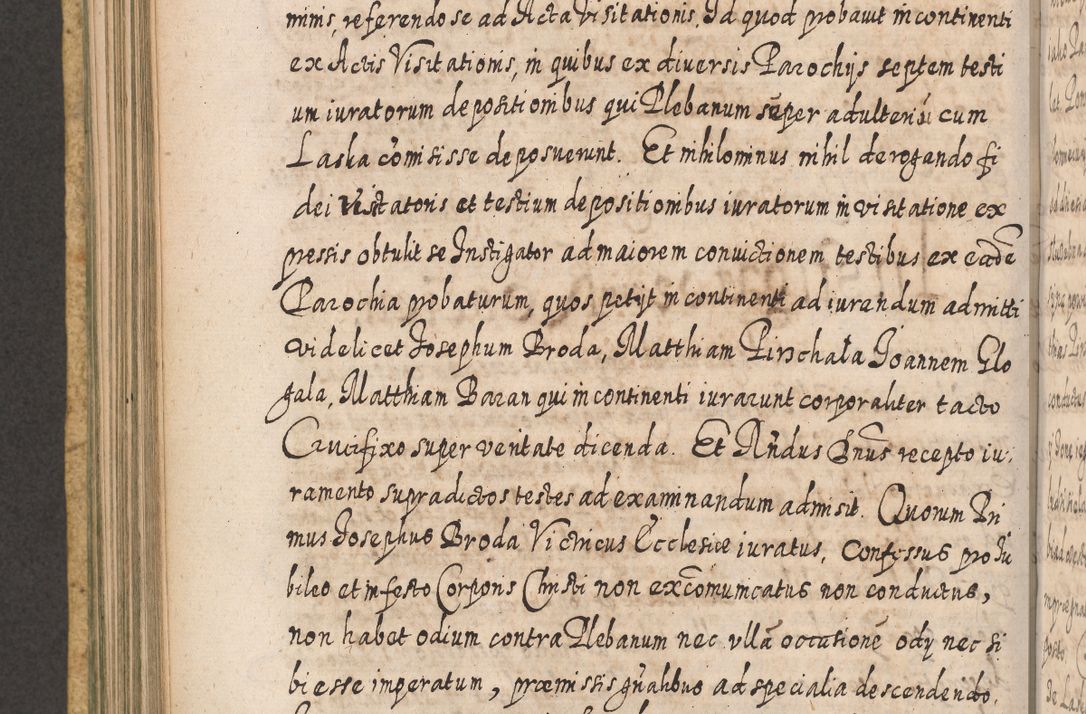 minis, referendo se ad Acta Visitationis, Id quod probavit in continenti
ex Actis Visitationis, in quibus ex diversis Parochijs septem testi
um iuratorum depositionibus qui Plebanum sũper adulteriũ cum
Laska cõmisisse deposuerunt. Et nihilominus nihil derogando fi
dei Visitatoris et testium depositionibus iuratorum in visitatione ex
pressis obtulit se Instigator ad maiorem convictionem testibus ex eadẽ
Parochia probaturum, quos petijt in continenti ad iurandum admitti
videlicet Josephum Broda, Matthiam Pirschała Joannem Glo
gala, Matthiam Baran qui in continenti iurarunt corporaliter tacto
Crucifixo super veritate dicenda. Et Rñdus Dnũs recepto iu,
ramento supradictos testes ad examinandum admisit. Quorum Pri
mus Josephus Broda Victricus Ecclesiæ iuratus, confessus pro Ju
bileo et in festo Corporis Christi non excõmunicatus non conductus,
non habet odium contra Plebanum nec vllã occasionẽ odij nec si
bi esse imperatum, præmissis gñalibus ad specialia descendendo.